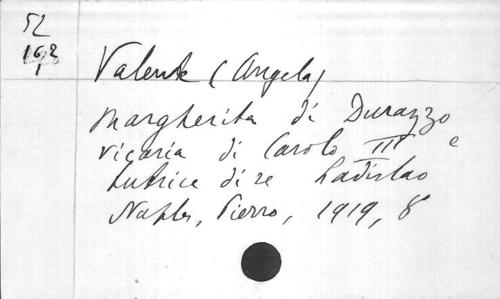 52
162
Valente (Angela)
Margherita di Durazzo
vicaria di Carolo III e
tutrice di re Ladislao
Naples, Pierro, 1919, 8°